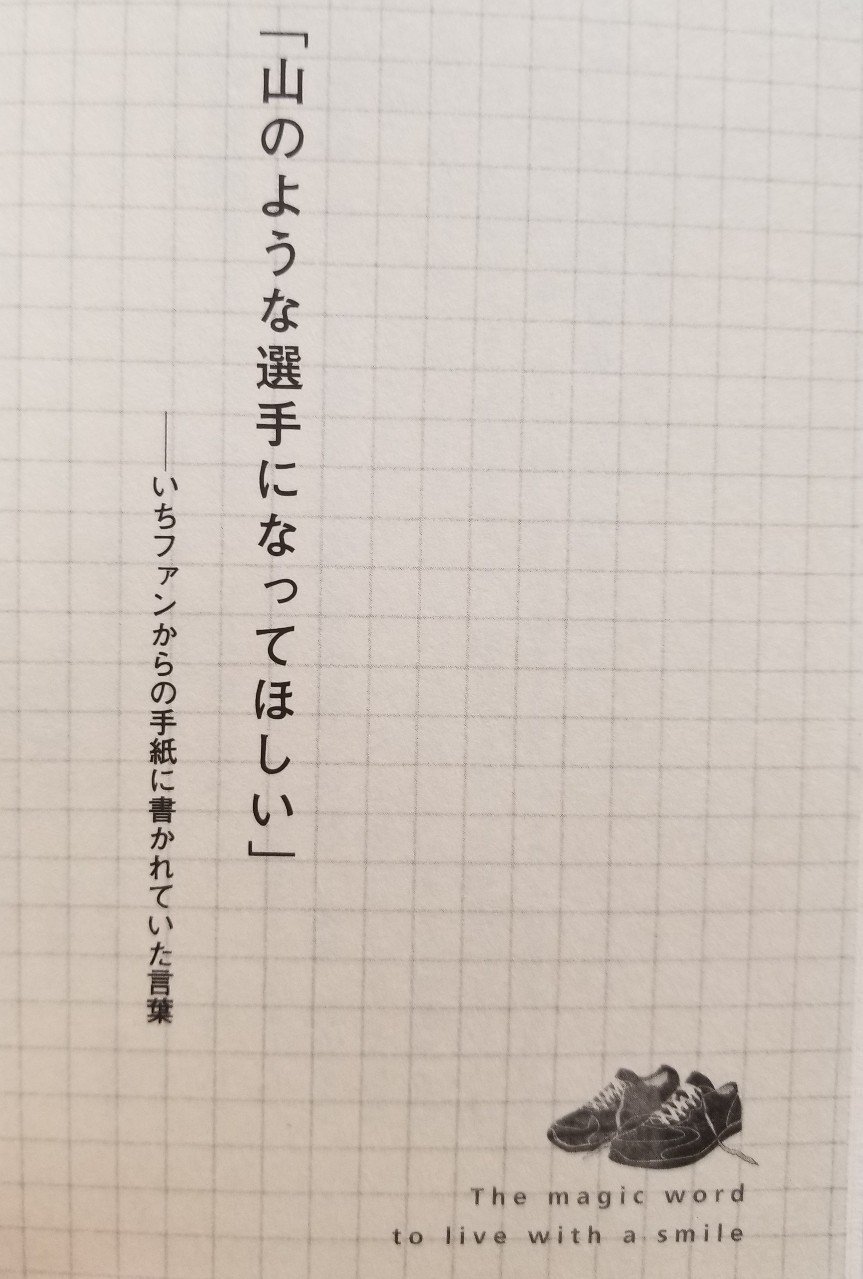 「山のような選手になってほしい」
──いちファンからの手紙に書かれていた言葉
The magic word
to live with a smile